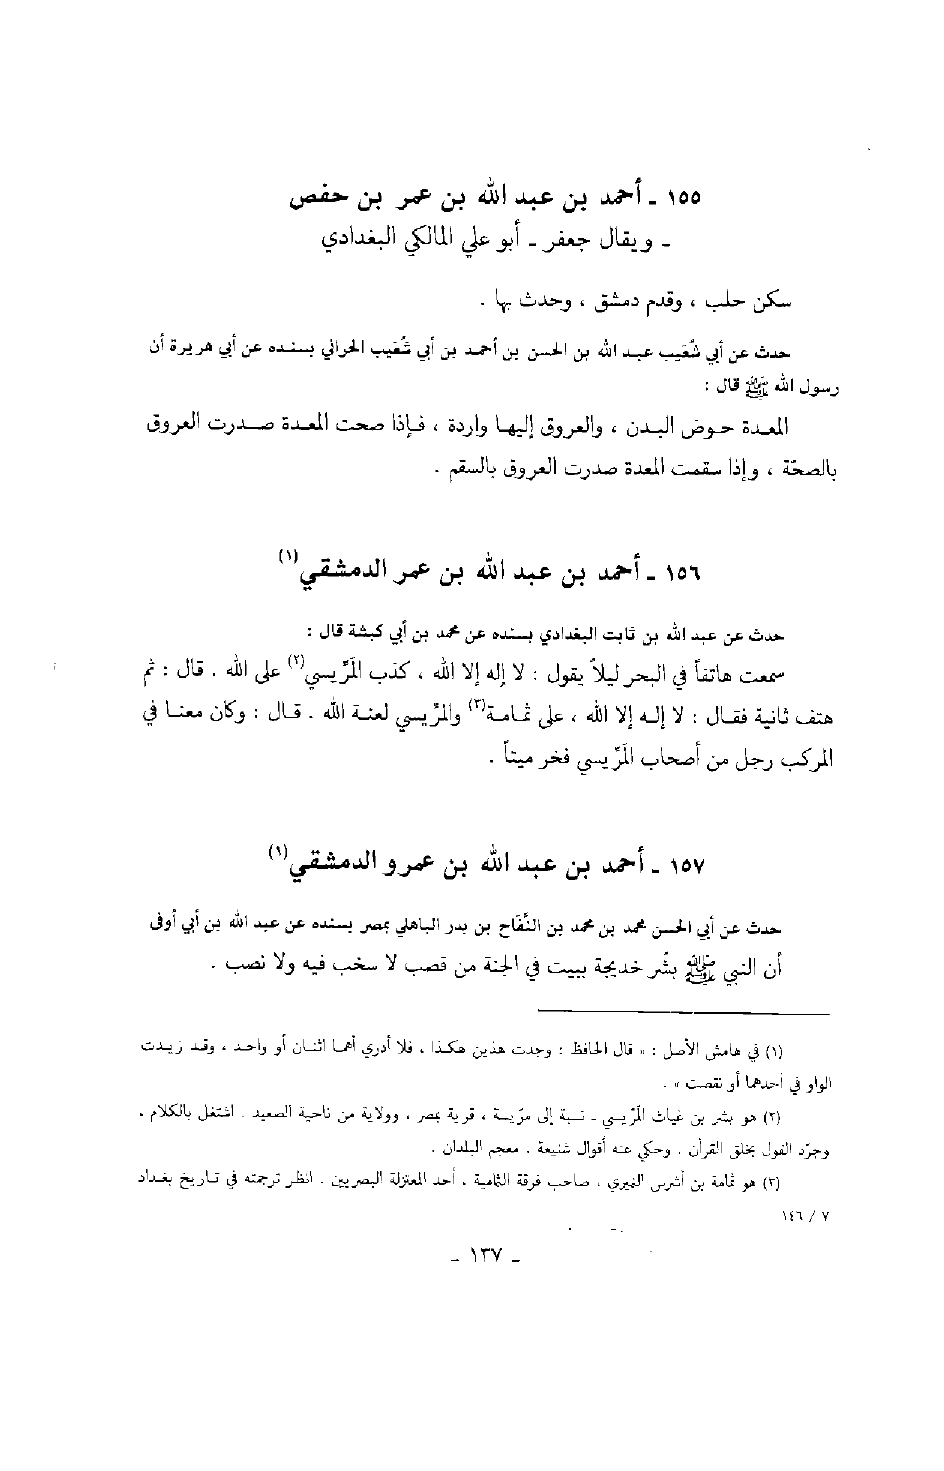 ١٥٥ ـ أحمد بن عبد الله بن عمر بن حفص
ـ ويقال جعفر ـ أبو علي المالكي البغدادي
سكن حلب ، وقدم دمشق ، وحدث بها .
حدث عن أبي شُعَيب عبد الله بن الحسن بن أحمد بن أبي شُعَيب الحراني بسنده عن أبي هريرة أن
رسول الله ﷺ قال :
المعدة حوض البدن ، والعروق إليها واردة ، فإذا صحت المعدة صدرت العروق
بالصحّة ، وإذا سقمت المعدة صدرت العروق بالسقم .
١٥٦ ـ أحمد بن عبد الله بن عمر الدمشقي(١)
حدث عن عبد الله بن ثابت البغدادي بسنده عن محمد بن أبي كبشة قال :
سمعت هاتفاً في البحر ليلاً يقول : لا إله إلا الله ، كذب المَرِّيسي(٢) على الله . قال : ثم
هتف ثانية فقال : لا إله إلا الله ، على ثمامة(٣) والمَرِّيسي لعنة الله . قال : وكان معنا في
المركب رجل من أصحاب المَرِّيسي فخر ميتاً .
١٥٧ ـ أحمد بن عبد الله بن عمرو الدمشقي(١)
حدث عن أبي الحسن محمد بن محمد بن النُّفَّاح بن بدر الباهلي بمصر بسنده عن عبد الله بن أبي أوفى
أن النبي ﷺ بشَّر خديجة ببيت في الجنة من قصب لا سخب فيه ولا نصب .
(١) في هامش الأصل : « قال الحافظ : وجدت هذين هكذا ، فلا أدري أهما اثنان أو واحد ، وقد زيدت
الواو في أحدهما أو نقصت » .
(٢) هو بشر بن غياث المَرِّيسي ـ نسبة إلى مَرِّيسة ، قرية بمصر ، وولاية من ناحية الصعيد . اشتغل بالكلام ،
وجرّد القول بخلق القرآن . وحكي عنه أقوال شنيعة . معجم البلدان .
(٣) هو ثمامة بن أشرس النميري ، صاحب فرقة الثمامية ، أحد المعتزلة البصريين . انظر ترجمته في تاريخ بغداد
٧ / ١٤٦
ـ ١٣٧ ـ